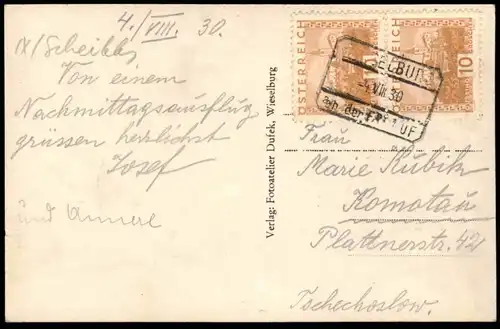 4./VIII. 30.
N/Scheibbs
Von einem
Nachmittagsausflug
grüssen herzlichst
Josef
und Annerl
Verlag: Fotoatelier Dufek, Wieselburg
ÖSTERREICH
10
ÖSTERREICH
10
-4.VIII.30
an der ERLAUF
Frau
Marie Kubik
Komotau
Plattnerstr. 42
Tschechoslow.